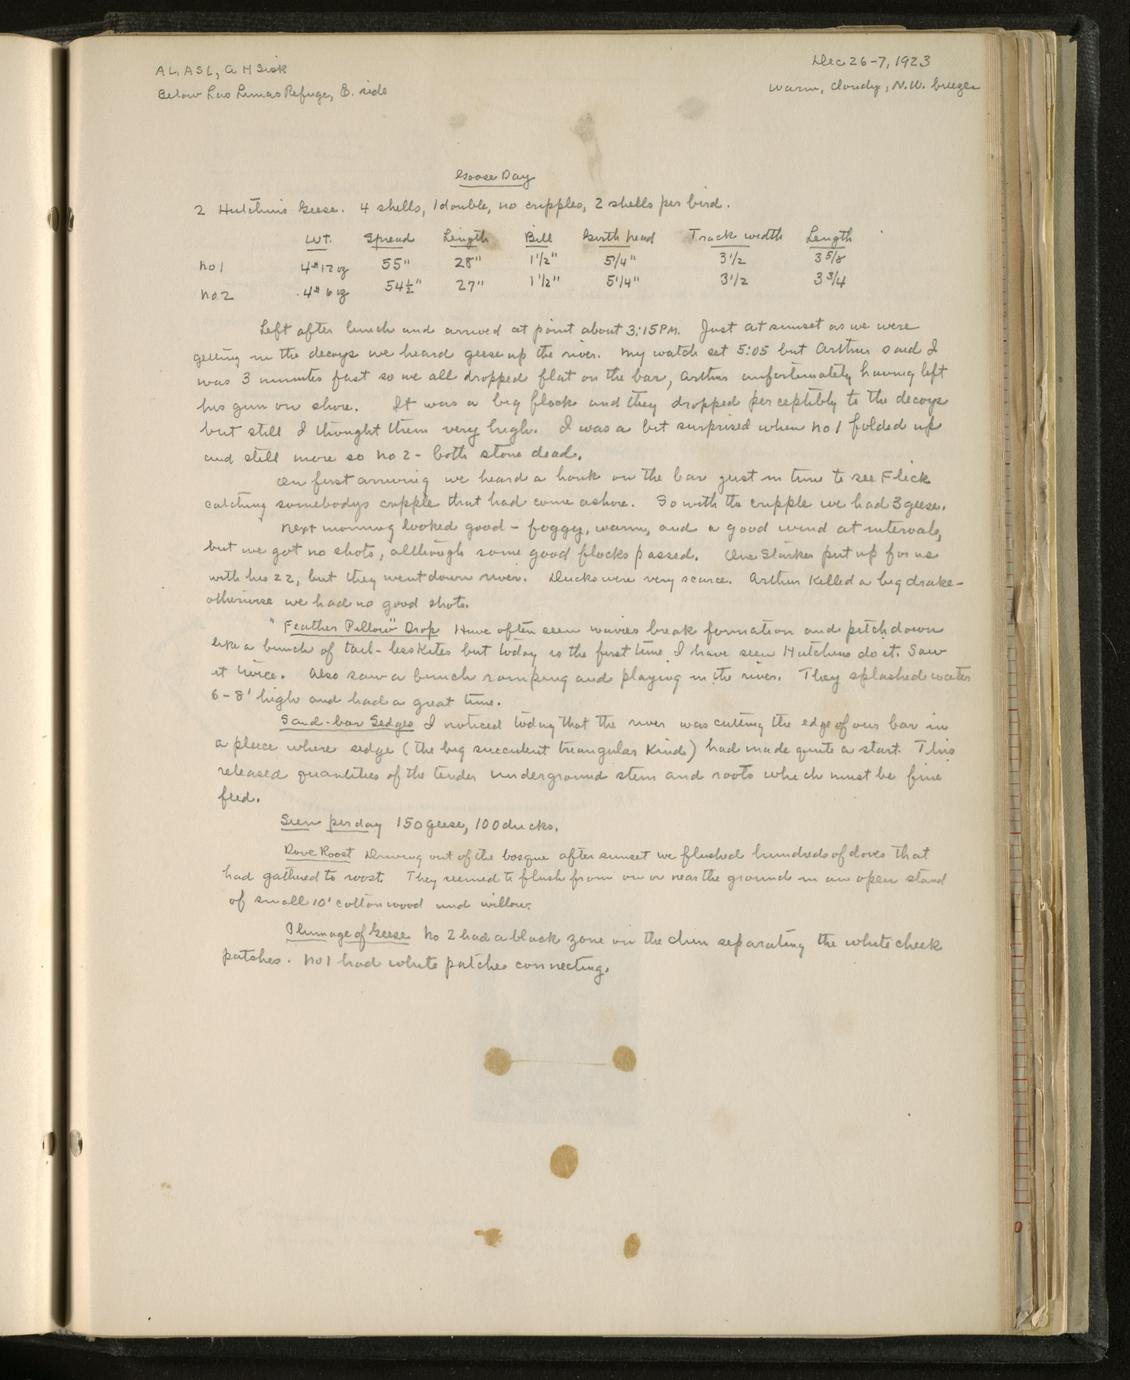 AL, ASL, A H Sisk
Dec 26-7, 1923
Below Los Lunas Refuge, E. side
Warm, cloudy, N.W. breeze
Goose Day
2 Hutchins Geese. 4 shells, 1 double, no cripples, 2 shells per bird.
Wt. Spread Length Bill Girth head Track width Length
No 1 4# 12 oz 55" 28" 1 1/2" 5 1/4" 3 1/2 3 5/8
No. 2 4# 6 oz 54 1/2" 27" 1 1/2" 5 1/4" 3 1/2 3 3/4
Left after lunch and arrived at point about 3:15 PM. Just at sunset as we were
getting in the decoys we heard geese up the river. My watch set 5:05 but Arthur said I
was 3 minutes fast so we all dropped flat on the bar, Arthur unfortunately having left
his gun on shore. It was a big flock and they dropped perceptibly to the decoys
but still I thought them very high. I was a bit surprised when No 1 folded up
and still more so No 2 - both stone dead.
On first arriving we heard a honk on the bar just in time to see Flick
catching somebodys cripple that had come ashore. So with the cripple we had 3 geese.
Next morning looked good - foggy, warm, and a good wind at intervals,
but we got no shots, although some good flocks passed. One Starker put up for us
with his 22, but they went down river. Ducks were very scarce. Arthur killed a big drake -
otherwise we had no good shots.
"Feather Pillow" Drop Have often seen wavies break formation and pitch down
like a bunch of tail-less kites but today is the first time I have seen Hutchins do it. Saw
it twice. Also saw a bunch romping and playing in the river. They splashed water
6-8' high and had a great time.
Sand-bar Sedges I noticed today that the river was cutting the edge of our bar in
a place where sedge (the big succulent triangular kind) had made quite a start. This
released quantities of the tender underground stem and roots which must be fine
feed.
Seen per day 150 geese, 100 ducks.
Dove Roost Driving out of the bosque after sunset we flushed hundreds of doves that
had gathered to roost. They seemed to flush from on or near the ground in an open stand
of small 10' cottonwood and willow.
Plumage of Geese No 2 had a black zone on the chin separating the white cheek
patches. No 1 had white patches connecting.